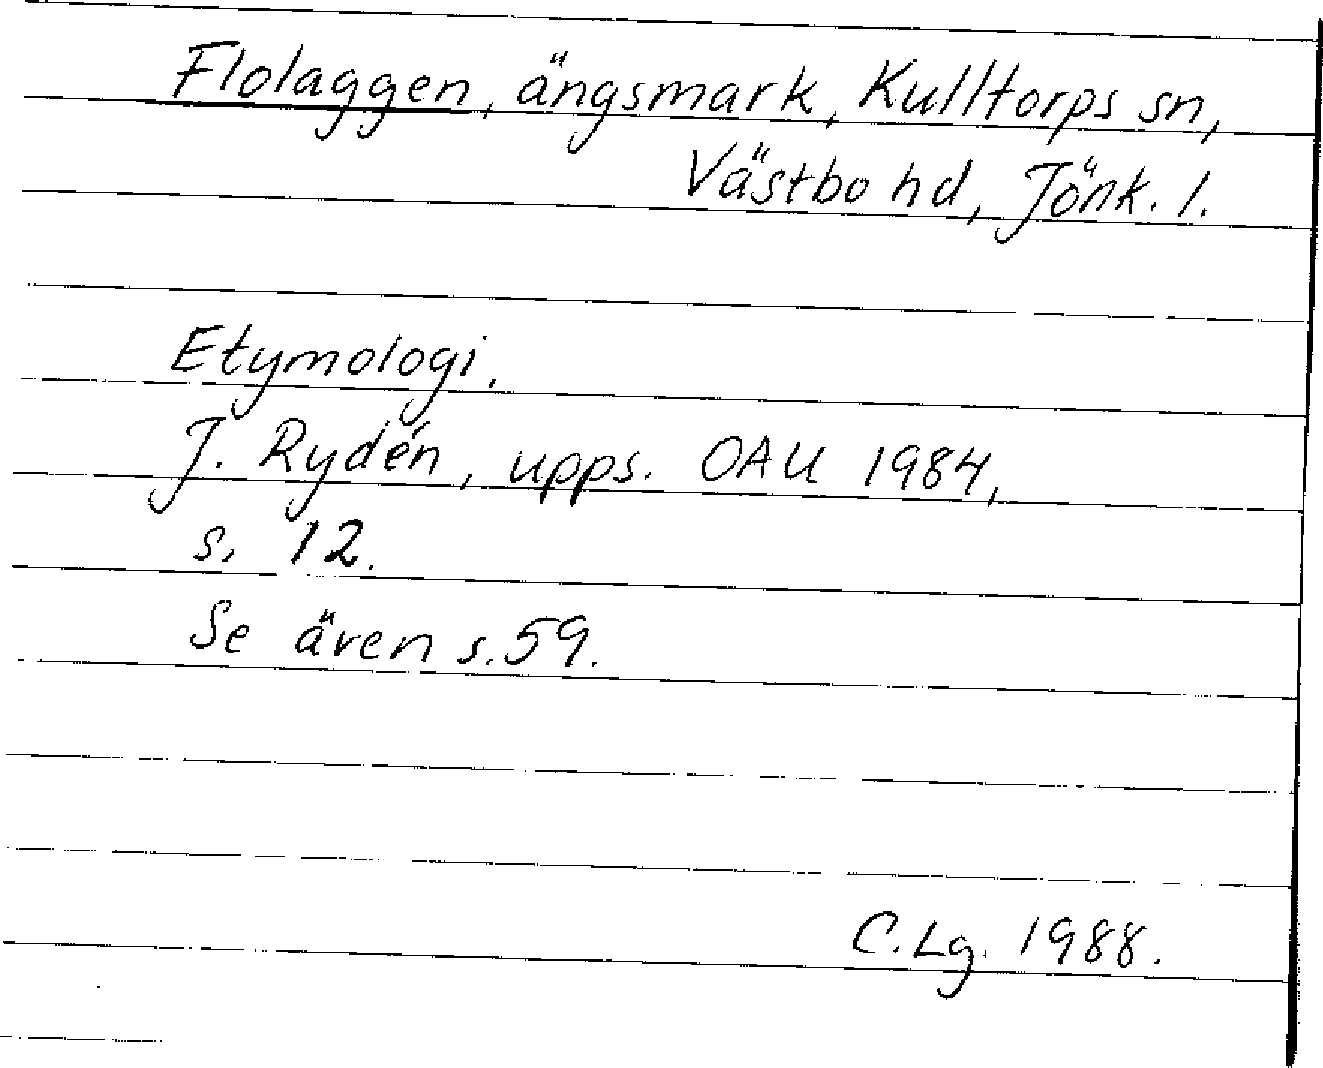 Flolaggen, ängsmark, Kulltorps sn,
Västbo hd, Jönk. l.
Etymologi.
J. Rydén, upps. OAU 1984,
s. 12.
Se även s. 59.
C.Lg. 1988.